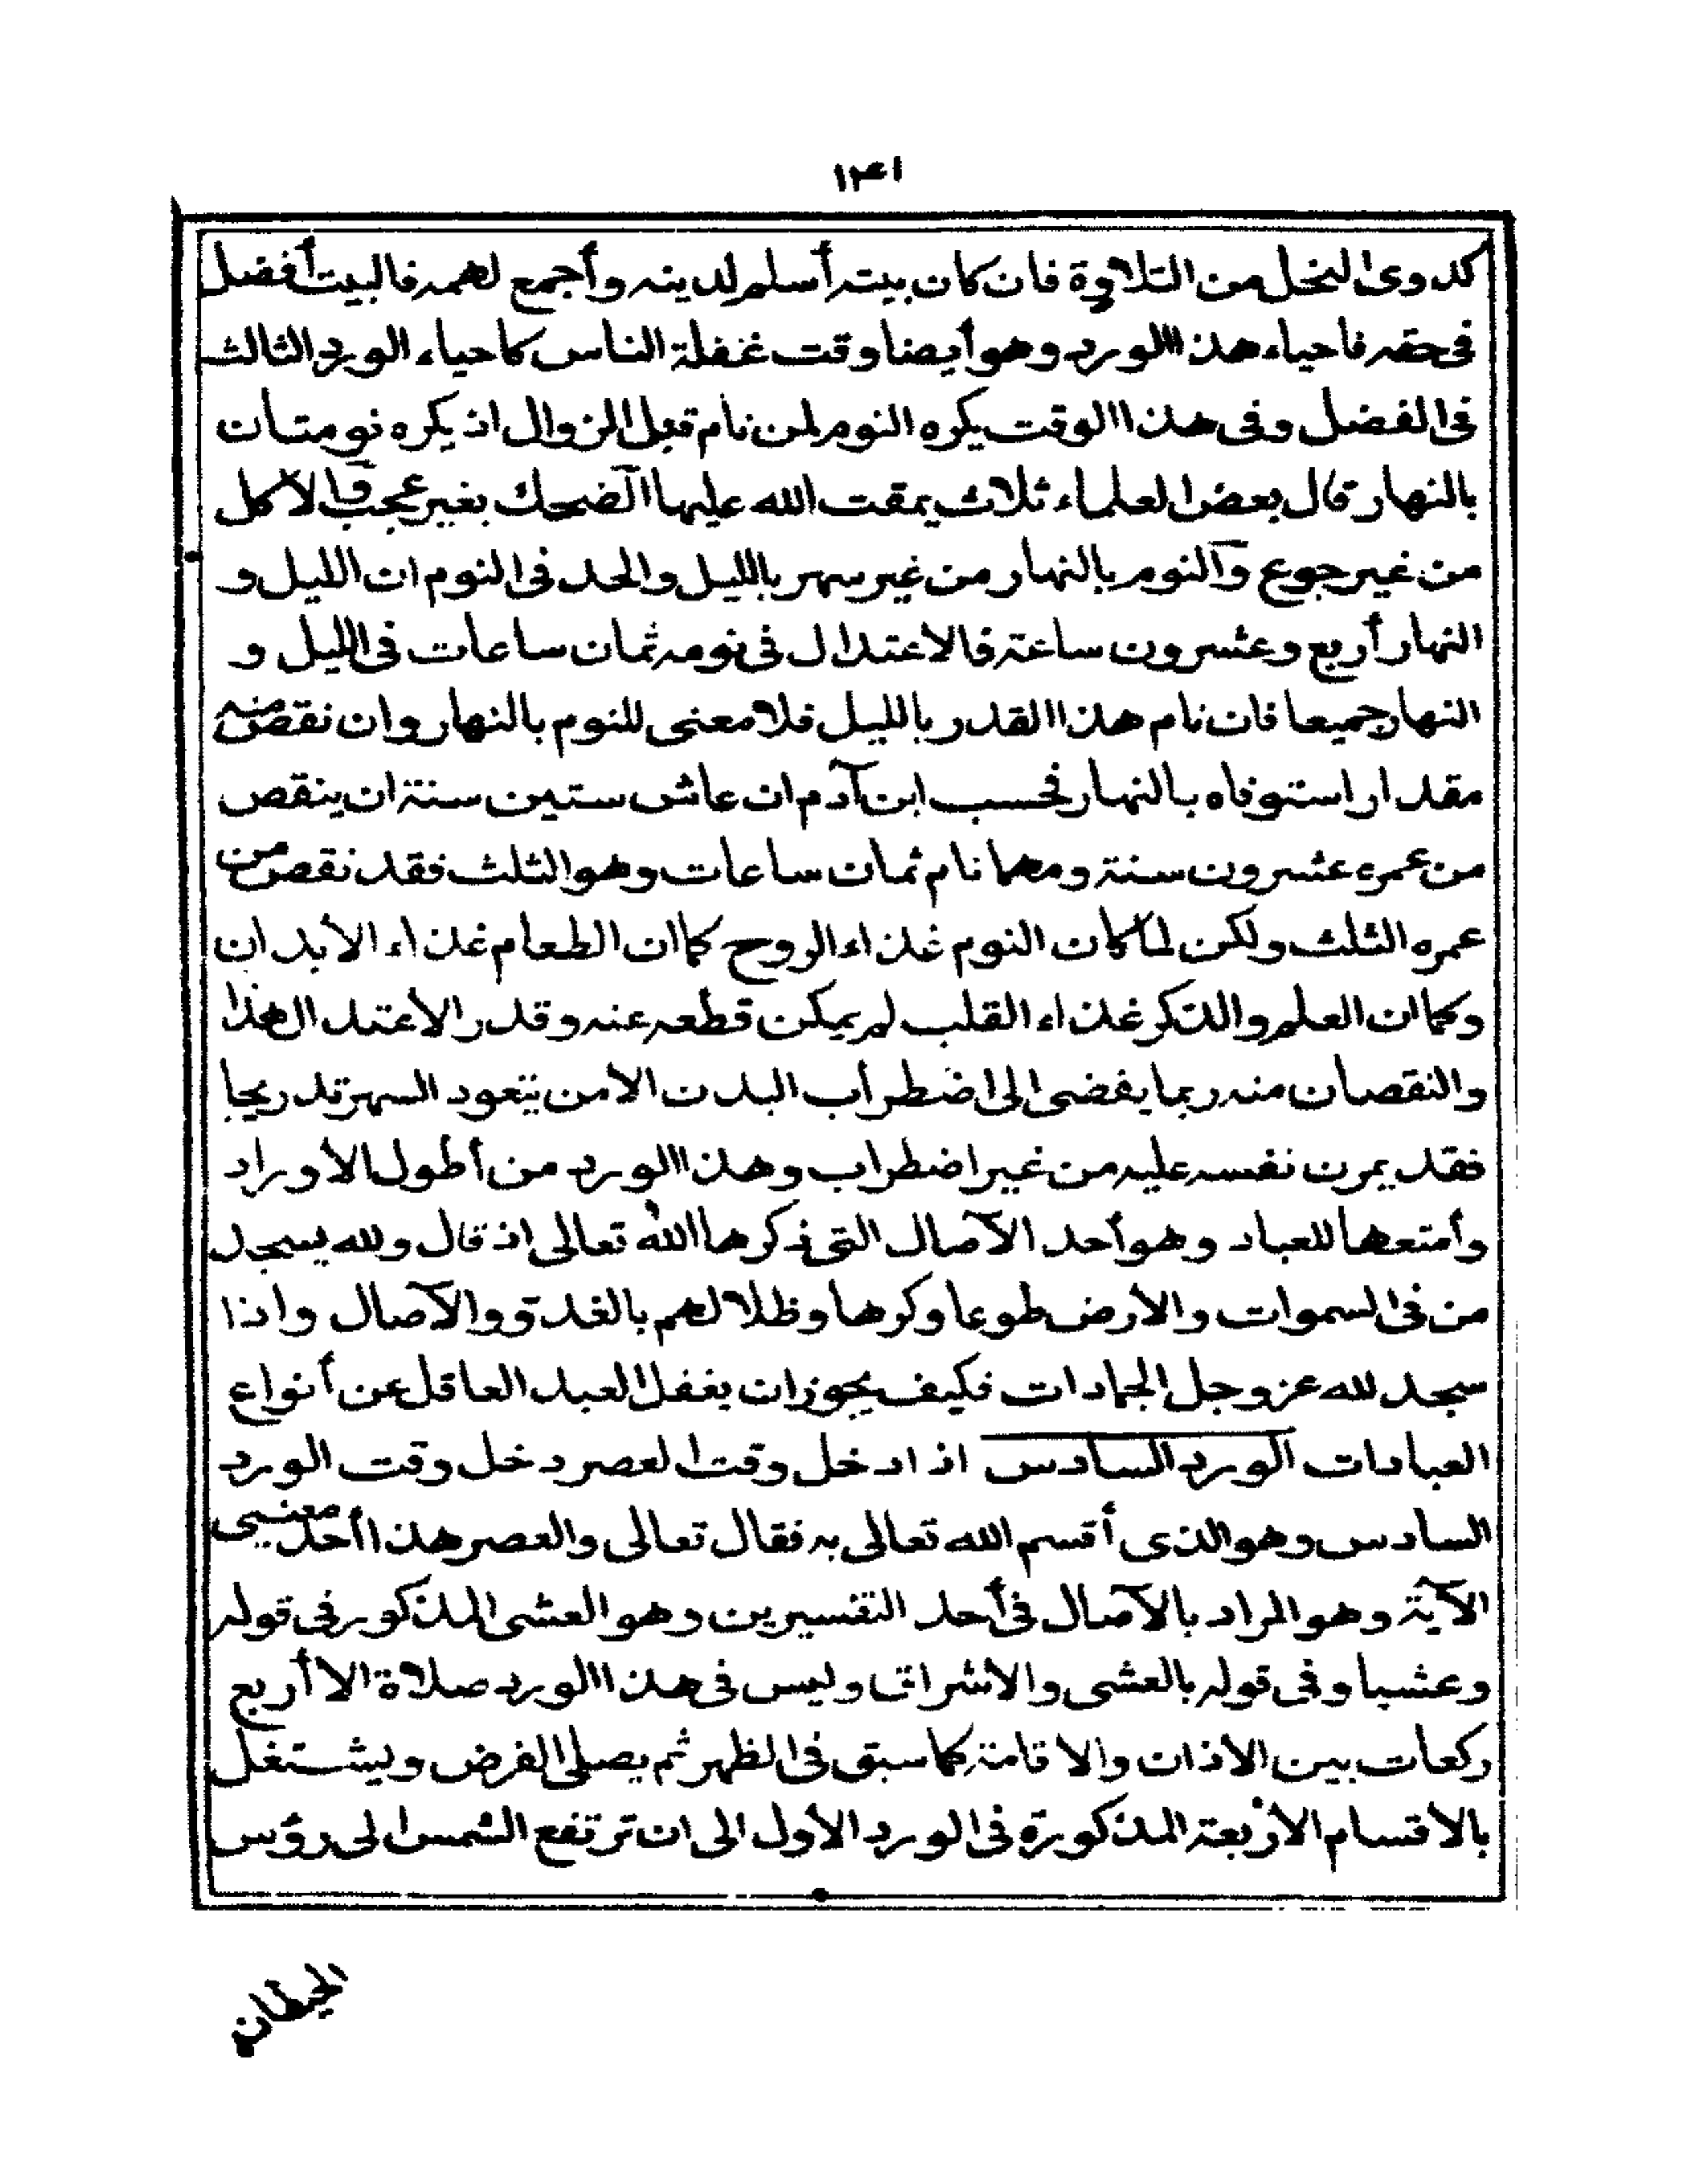 ١٢٤١
كدوى النحل من التلاوة فان كان بيته أسلم لدينه وأجمع لهمه فالبيت أفضل
فى حقه فاحياء هذا الورد وهو أيضا وقت غفلة الناس كاحياء الورد الثالث
فى الفضل وفى هذا الوقت يكره النوم لمن نام قبل الزوال اذ يكره نومتان
بالنهار قال بعض العلماء ثلاث يمقت الله عليها الضحك بغير عجب والاكل
من غير جوع والنوم بالنهار من غير سهر بالليل والحد فى النوم ان الليل و
النهار أربع وعشرون ساعة فالاعتدال فى نومه ثمان ساعات فى الليل و
النهار جميعا فان نام هذا القدر بالليل فلا معنى للنوم بالنهار وان نقص منه
مقدارا استوفاه بالنهار فحسب ابن آدم ان عاش ستين سنة ان ينقص
من عمره عشرون سنة ومهما نام ثمان ساعات وهو الثلث فقد نقص من
عمره الثلث ولكن لما كان النوم غذاء الروح كما ان الطعام غذاء الأبدان
وكما ان العلم والذكر غذاء القلب لم يمكن قطعه عنه وقدر الاعتدال هذا
والنقصان منه ربما يفضى الى اضطراب البدن الا من يتعود السهر تدريجا
فقد يمرن نفسه عليه من غير اضطراب وهذا الورد من أطول الأوراد
وأمتعها للعباد وهو أحد الآصال التى ذكرها الله تعالى اذ قال ولله يسجد
من فى السموات والأرض طوعا وكرها وظلالهم بالغدو والآصال واذا
سجد لله عز وجل الجمادات فكيف يجوز ان يغفل العبد العاقل عن أنواع
العبادات الورد السادس اذا دخل وقت العصر دخل وقت الورد
السادس وهو الذى أقسم الله تعالى به فقال تعالى والعصر هذا أحد معنيى
الآية وهو المراد بالآصال فى أحد التفسيرين وهو العشى المذكور فى قوله
وعشيا وفى قوله بالعشى والاشراق وليس فى هذا الورد صلاة الا أربع
ركعات بين الاذان والاقامة كما سبق فى الظهر ثم يصلى الفرض ويشتغل
بالاقسام الأربعة المذكورة فى الورد الأول الى ان ترتفع الشمس الى رؤس
الحيطان